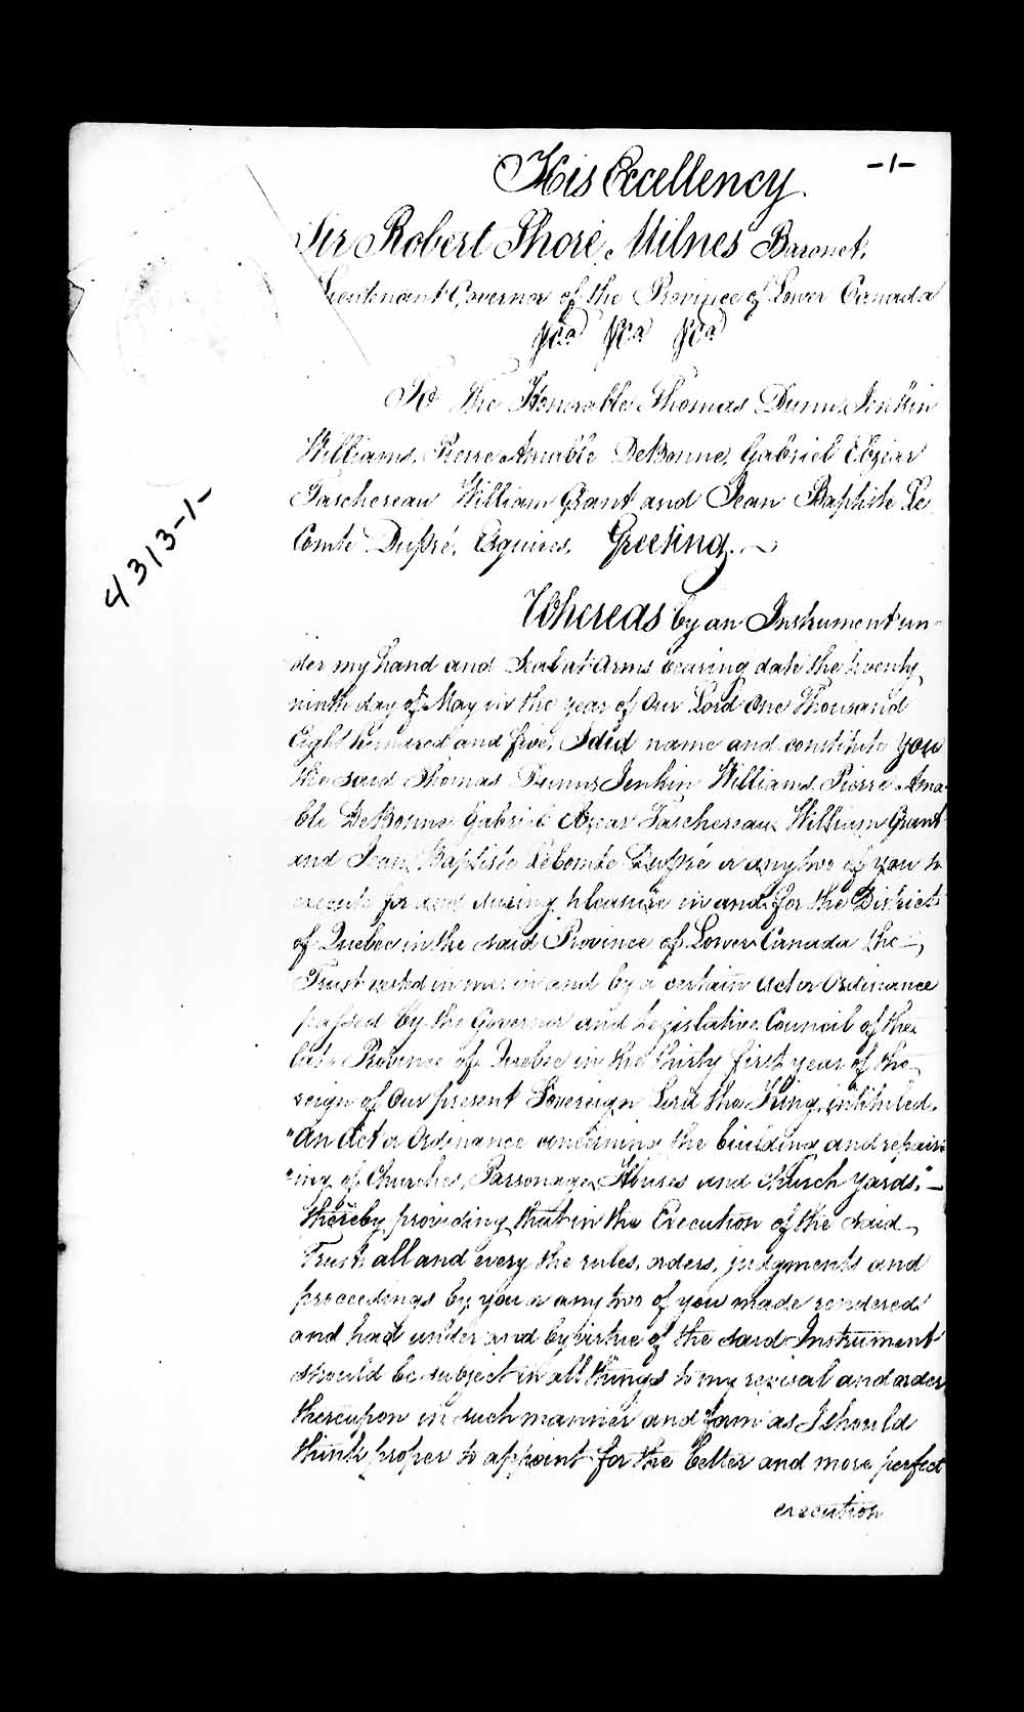 -1-
His Excellency
Sir Robert Shore Milnes Baronet,
Lieutenant Governor of the Province of Lower Canada
&ca &ca &ca
To the Honorable Thomas Dunn, Jenkin
Williams, Pierre Amable DeBonne, Gabriel Elzear
Taschereau William Grant and Jean Baptiste Le
Comte Dupré, Esquires, Greeting.
4313-1-
Whereas by an Instrument un-
der my hand and Seal at Arms bearing date the twenty
ninth day of May in the year of our Lord one Thousand
Eight hundred and five, I did name and constitute you
the said Thomas Dunn, Jenkin Williams, Pierre Ama-
ble DeBonne Gabriel Elzear Taschereau, William Grant
and Jean Baptiste LeComte Dupré or any two of you to
execute for and during pleasure in and for the District
of Quebec in the said Province of Lower Canada the
Trust vested in me in and by a certain Act or Ordinance
passed by the Governor and Legislative Council of the
late Province of Quebec in the thirty first year of the
reign of Our present Sovereign Lord the King, intituled,
"An Act or Ordinance concerning the building and repair-
"ing of Churches, Parsonage Houses and Church Yards,"
thereby providing that in the Execution of the said
Trust all and every the rules, orders, judgments and
proceedings by you or any two of you made rendered
and had under and by virtue of the said Instrument
should be subject in all things to my revisal and order
thereupon in such manner and form as I should
think proper to appoint for the better and more perfect
execution